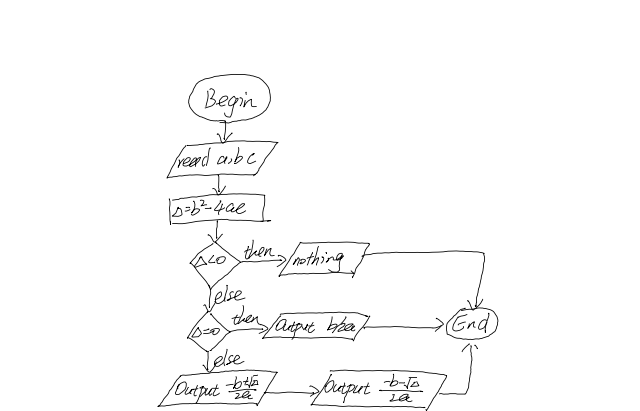 Begin
read a,b c
Δ=b²-4ac
Δ<0 then nothing
else
Δ=0 then Output b/2a End
else
Output -b+√Δ/2a Output -b-√Δ/2a